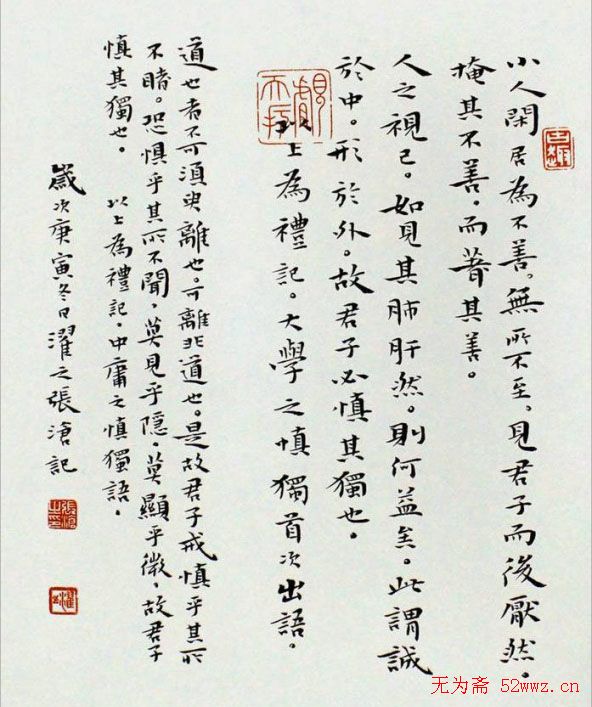 古趣
小人閑居為不善。無所不至、見君子而後厭然。
掩其不善。而著其善。
人之視己。如見其肺肝然。則何益矣。此謂誠
於中。形於外。故君子必慎其獨也。
以上為禮記。大學之慎獨首次出語。
道也者不可須臾離也。可離非道也。是故君子戒慎乎其所
不睹。恐懼乎其所不聞。莫見乎隱。莫顯乎微。故君子
慎其獨也。 以上為禮記。中庸之慎獨語。
歲次庚寅冬日濯之張滄記
无为斋 52wwz.cn